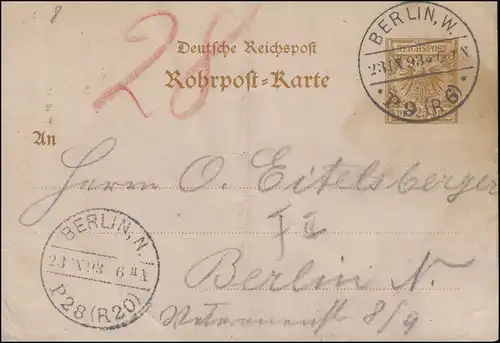 8
28
BERLIN, W.
23 IX 93
P 9 (R 6)
REICHSPOST
25
Deutsche Reichspost
Rohrpost-Karte
An
Herrn O. Eitelsberger
Berlin N.
8/9
BERLIN, N.
23 IX 93 6
P28 (R20)